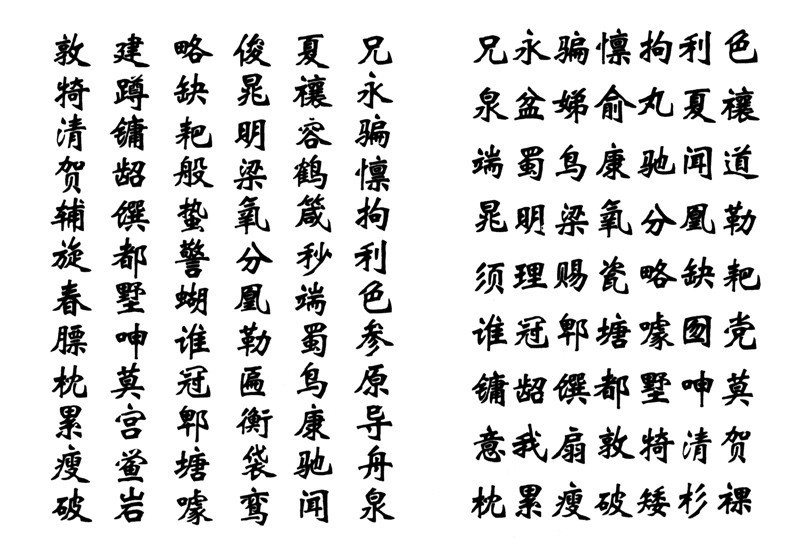 兄永骗懔拘利色参原导舟泉
夏禳容鹤箴秒端蜀鸟康驰闻
俊晁明梁氧分凰勒匾衡袋鸾
略缺耙般蛰警蝴谁冠郫塘噱
建蹲镛龆馔都墅呻莫宫鲎岩
敦犄清贺辅旋春膘枕累瘦破
兄永骗懔拘利色
泉盆娣俞丸夏禳
端蜀鸟康驰闻道
晁明梁氧分凰勒
须理赐瓷略缺耙
谁冠郫塘噱囫党
镛龆馔都墅呻莫
意我扇敦犄清贺
枕累瘦破矮杉裸